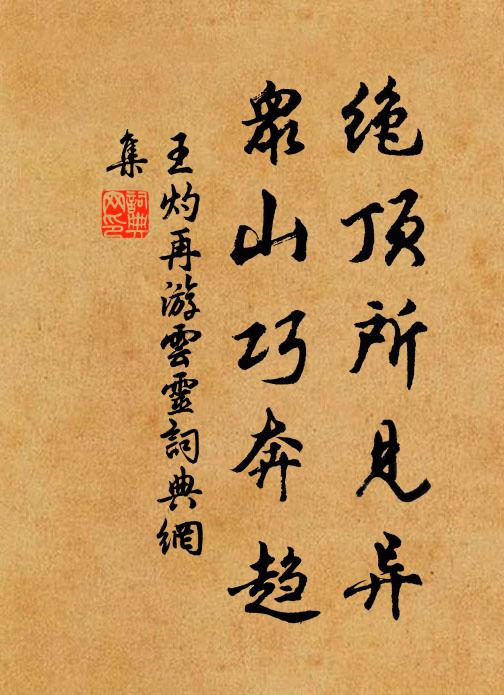 绝顶所见异
众山巧奔趋
王灼再游雲靈詞典網
集
詞典網印